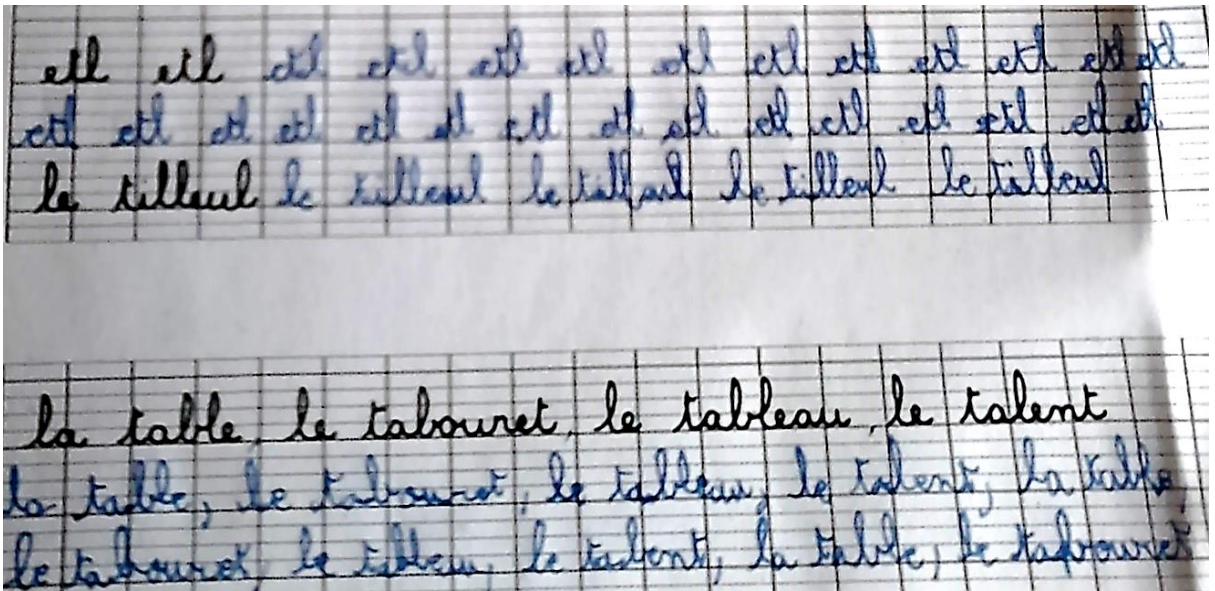 etl etl etl etl etl etl etl etl etl etl etl etl etl
etl etl etl etl etl etl etl etl etl etl etl etl etl etl etl
le tilleul le tilleul le tilleul le tilleul le tilleul
la table, le tabouret, le tableau, le talent
la table, le tabouret, le tableau, le talent, la table,
le tabouret, le tableau, le talent, la table, le tabouret